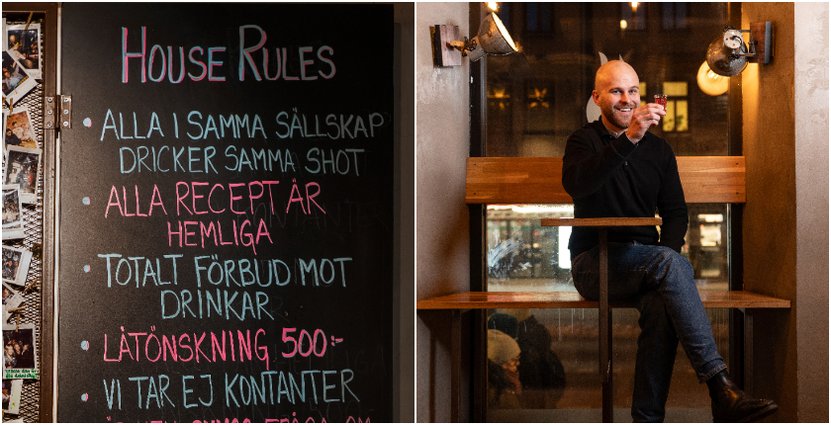 HOUSE RULES
• ALLA I SAMMA SÄLLSKAP
DRICKER SAMMA SHOT
• ALLA RECEPT ÄR
HEMLIGA
• TOTALT FÖRBUD MOT
DRINKAR
• LÅTÖNSKNING 500:-
• VI TAR EJ KONTANTER